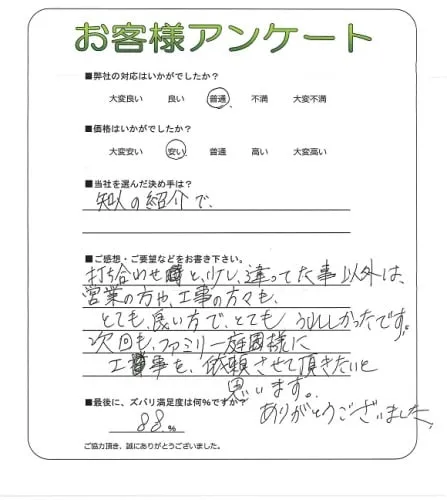 お客様アンケート
■弊社の対応はいかがでしたか?
大変良い 良い 普通 不満 大変不満
■価格はいかがでしたか?
大変安い 安い 普通 高い 大変高い
■当社を選んだ決め手は?
知人の紹介で、
■ご感想・ご要望などをお書き下さい。
打ち合わせ時と、少し、違ってた事以外は、
営業の方や、工事の方々も、
とても、良い方で、とても うれしかったです。
次回も、ファミリー庭園様に
工事を、依頼させて頂きたいと
思います。
ありがとうございました。
■最後に、ズバリ満足度は何%ですか?
88.%
ご協力頂き、誠にありがとうございました。